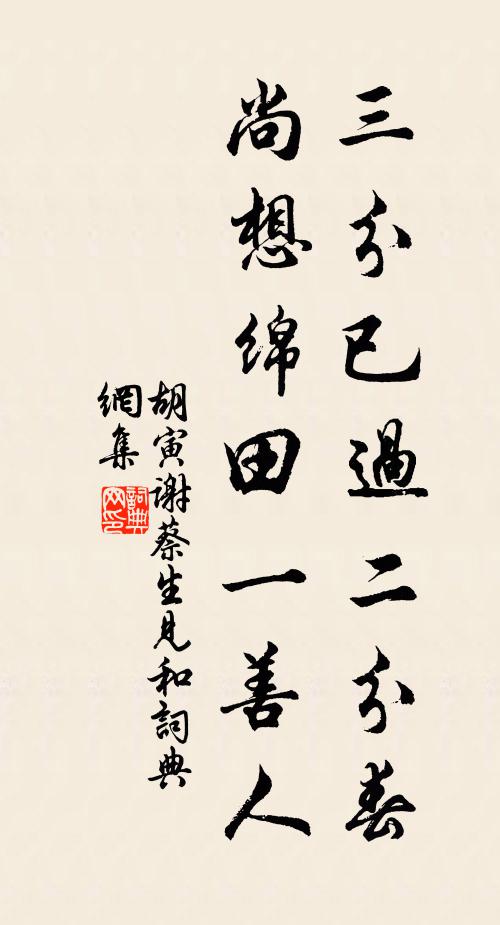 三分已過二分春
尚想綿田一善人
胡寅謝蔡生見和詞典
網集
詞典
网印